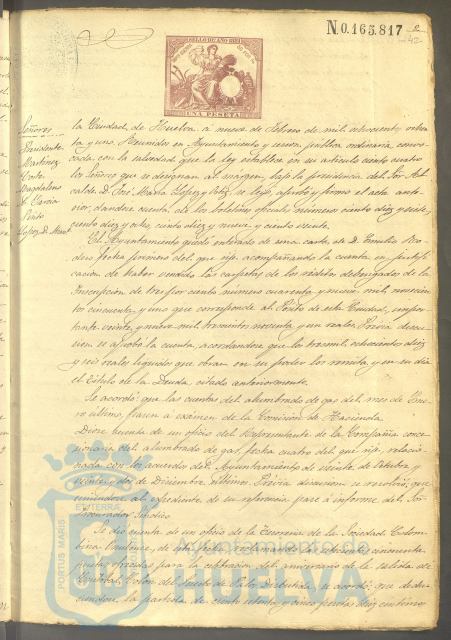 N.0.165.817
SELLO DE AÑO 1881
UNA PESETA
Señores
Presidente
Martinez
Coto
Magdaleno
de Garcia
Pinto
Lopez D. Man.l
la Ciudad de Huelva a nueve de Febrero de mil ochocientos ochen
ta y uno. Reunidos en Ayuntamiento y sesion publica ordinaria convo-
cada con la salvedad que la ley establece en su articulo ciento cuatro
los Señores que se designan al margen, bajo la presidencia del Sor. Al-
calde D. José Maria Lopez y Ortiz se leyó, aprobó y firmó el acta ante-
rior, dandose cuenta de los boletines oficiales números ciento diez y siete,
ciento diez y ocho, ciento diez y nueve y ciento veinte.
El Ayuntamiento quedó enterado de una carta de D. Emilio
fecha primero del que rije acompañando la cuenta en justifi
cacion de haber vendido las carpetas de los réditos devengados de la
Inscripcion de tres por ciento número cuarenta y nueve mil novecien
tos cincuenta y uno que corresponde al Pósito de esta Ciudad, impor-
tante veinte y nueve mil trescientos noventa y un reales. Prévia discu-
sion se aprobó la cuenta, acordandose que los tres mil ochocientos diez
y seis reales liquidos que obran en su poder los remita y en su dia
el Titulo de la Deuda citado anteriormente.
Se acordó: que las cuentas del alumbrado de gas del mes de Ene
ro último, pasen a exámen de la Comision de Hacienda.
Diose cuenta de un oficio del Representante de la Compañia conce
sionaria del alumbrado de gas, fecha cuatro del que rije, relacio
nada con los acuerdos del Ayuntamiento de veinte de Octubre y
veinte y dos de Diciembre últimos. Prévia discusion se resolvió: que
uniendose al expediente de su referencia pase á informe del Sor.
Procurador Sindico.
Se dió cuenta de un oficio de la Tesoreria de la Sociedad Colom
bina Onubense, de esta fecha, reclamando las doscientas cincuenta
pesetas ofrecidas para la celebracion del aniversario de la salida de
Cristobal Colon del Puerto de Palos. Discutido se acordó: que dedu-
ciendose la partida de ciento ochenta y cinco pesetas diez centimos
PORTUS MARIS
ET TERRÆ
Ayuntamiento de
HUELVA